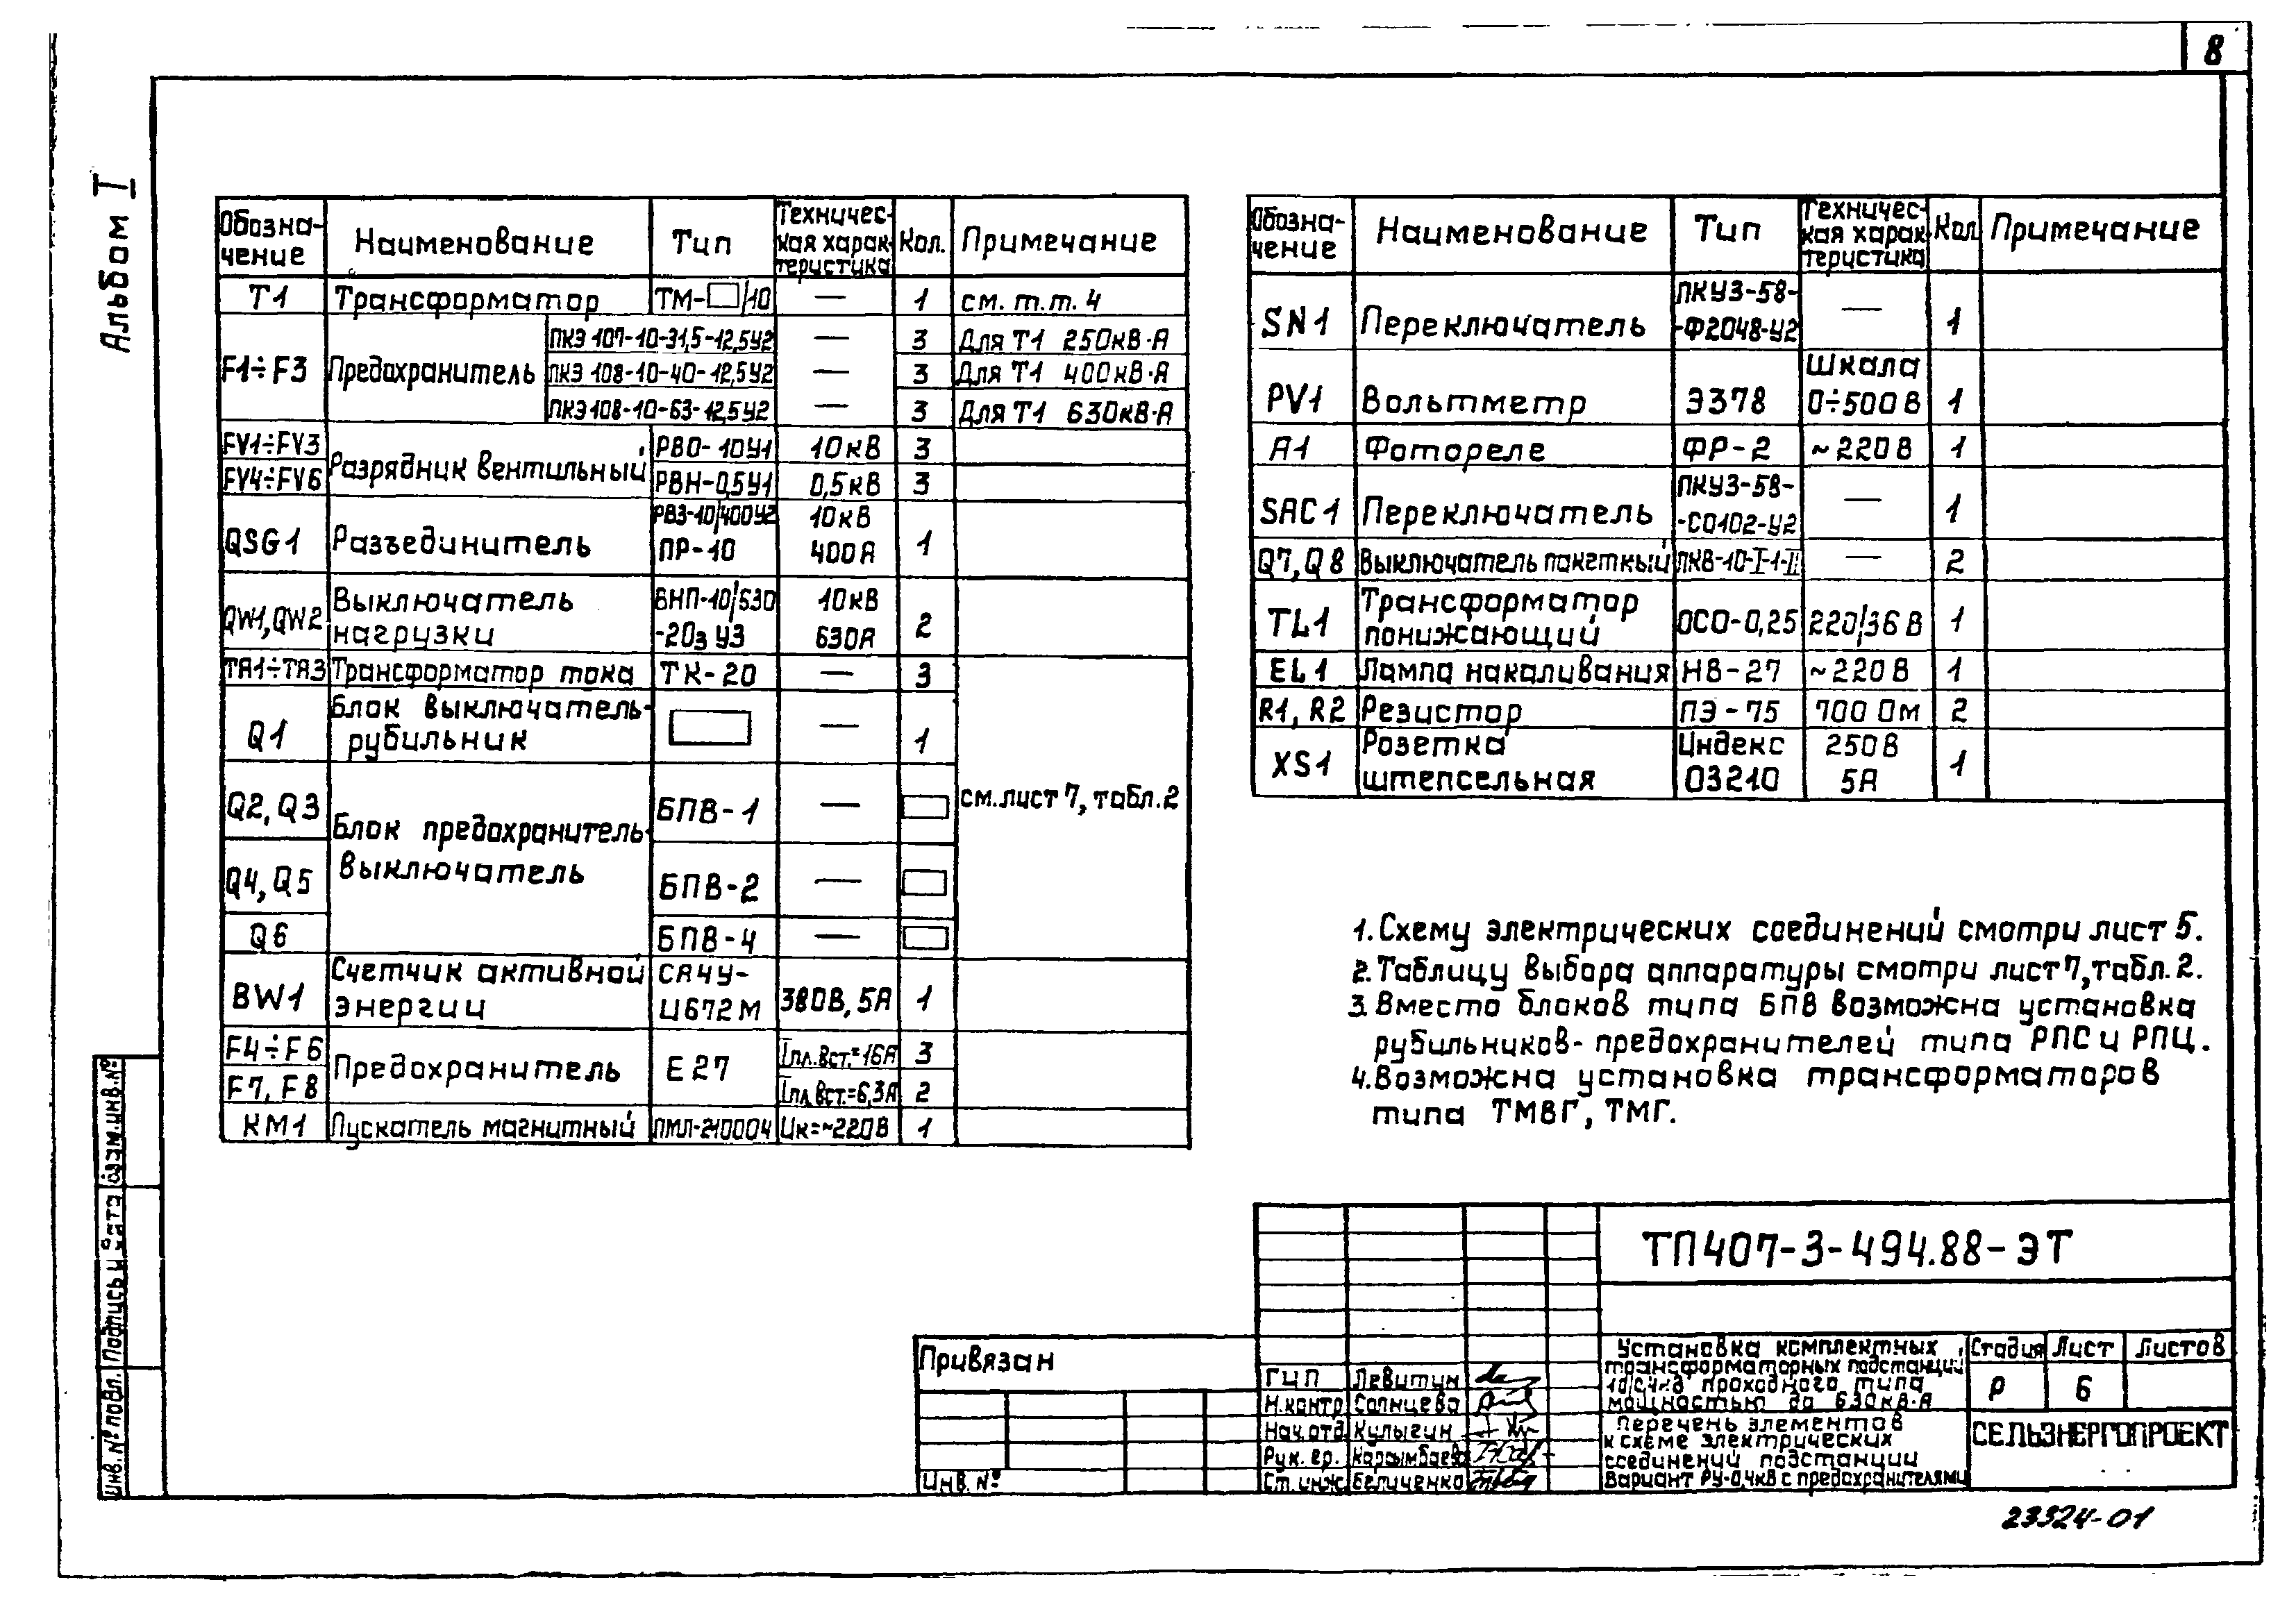 8
Альбом I
Обозна-чение Наименование Тип Техничес-кая харак-теристика Кол. Примечание
Т1 Трансформатор ТМ-□/10 — 1 см. т.т. 4
F1÷F3 Предохранитель ПКЭ 107-10-31,5-12,5У2 — 3 Для Т1 250кВ·А
ПКЭ 108-10-40-12,5У2 — 3 Для Т1 400кВ·А
ПКЭ 108-10-63-12,5У2 — 3 Для Т1 630кВ·А
FV1÷FV3 Разрядник вентильный РВО-10У1 10кВ 3
FV4÷FV6 РВН-0,5У1 0,5кВ 3
QSG1 Разъединитель РВЗ-10/400У2 10кВ
ПР-10 400А 1
QW1, QW2 Выключатель ВНП-10/630 10кВ
нагрузки -20з У3 630А 2
ТА1÷ТА3 Трансформатор тока ТК-20 — 3
Q1 Блок выключатель-рубильник — 1
Q2, Q3 Блок предохранитель- БПВ-1 — см. лист 7, табл. 2
Q4, Q5 выключатель БПВ-2 —
Q6 БПВ-4 —
BW1 Счетчик активной САЧУ-
энергии И672М 380В, 5А 1
F4÷F6 Предохранитель Е27 Iпл.вст.=16А 3
F7, F8 Iпл.вст.=6,3А 2
КМ1 Пускатель магнитный ПМЛ-210004 Uк=~220В 1
Обозна-чение Наименование Тип Техничес-кая харак-теристика Кол. Примечание
SN1 Переключатель ПКУ3-58-
-Ф2048-У2 — 1
PV1 Вольтметр Э378 Шкала
0÷500В 1
А1 Фотореле ФР-2 ~220В 1
SAC1 Переключатель ПКУ3-58-
-С0102-У2 — 1
Q7, Q8 Выключатель пакетный ПКВ-10-I-1-II — 2
TL1 Трансформатор
понижающий ОСО-0,25 220/36В 1
EL1 Лампа накаливания НВ-27 ~220В 1
R1, R2 Резистор ПЭ-75 700 Ом 2
XS1 Розетка Индекс 250В
штепсельная 03210 5А 1
1. Схему электрических соединений смотри лист 5.
2. Таблицу выбора аппаратуры смотри лист 7, табл. 2.
3. Вместо блоков типа БПВ возможна установка
рубильников-предохранителей типа РПС и РПЦ.
4. Возможна установка трансформаторов
типа ТМВГ, ТМГ.
ТП407-3-494.88-ЭТ
Привязан
Инв. №
ГИП Левитин
Н.контр Солнцева
Нач.отд Кулыгин
Рук. гр.
Ст. инж Беличенко
Установка комплектных
трансформаторных подстанций
10/0,4кВ проходного типа
мощностью до 630кВ·А
Стадия Лист Листов
Р 6
Перечень элементов
к схеме электрических
соединений подстанции
Вариант РУ-0,4кВ с предохранителями
СЕЛЬЭНЕРГОПРОЕКТ
23324-01
Инв. № подл. Подпись и дата Взам.инв.№